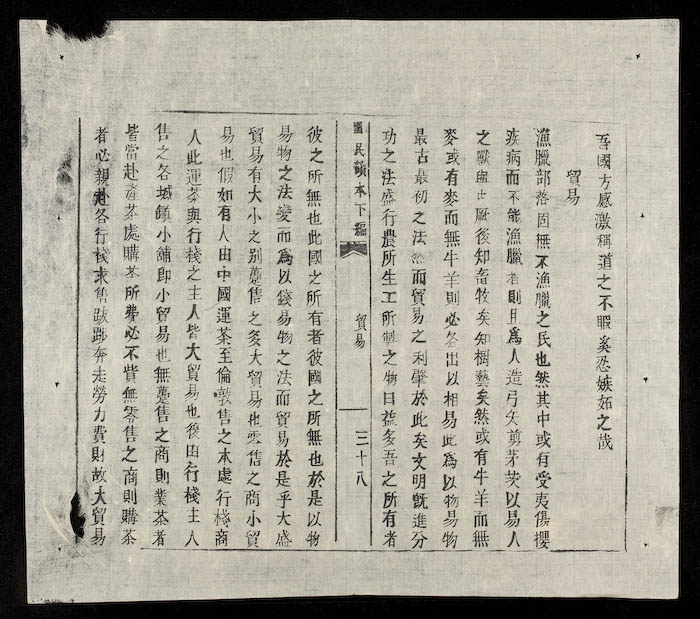 吾國方感激稱道之不暇奚忍嫉妬之哉
貿易
漁臘部落固無不漁臘之民也然其中或有受夷傷攖
疾病而不能漁臘者則且爲人造弓矢剪茅茨以易人
之獸與出厥後知畜牧矣知樹藝矣然或有牛羊而無
麥或有麥而無牛羊則必各出以相易此爲以物易物
最古最初之法然而貿易之利肇於此矣文明旣進分
功之法盛行農所生工所製之物日益多吾之所有者
國民讀本下編
貿易
三十八
彼之所無也此國之所有者彼國之所無也於是以物
易物之法變而爲以錢易物之法而貿易於是乎大盛
貿易有大小之别躉售之商大貿易也零售之商小貿
易也假如有人由中國運茶至倫敦售之本處行棧商
人此運茶與行棧之主人皆大貿易也復由行棧主人
售之各城鎮小舖即小貿易也無躉售之商則業茶者
皆當赴產茶處購茶所費必不貲無零售之商則購茶
者必親赴各行棧求售跋踄奔走勞力費財故大貿易